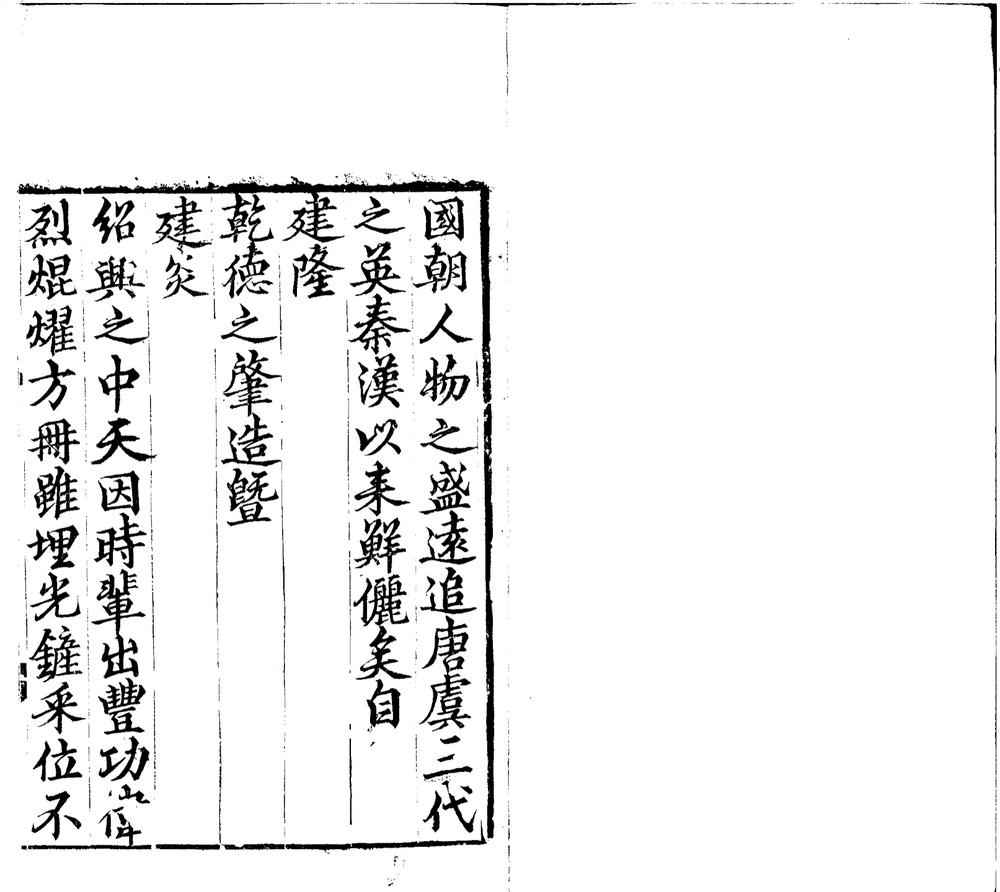 國朝人物之盛遠追唐虞三代
之英秦漢以来鮮儷矣自
建隆
乾德之肇造暨
建炎
紹興之中天因時輩出豐功偉
烈焜燿方冊雖埋光鏟采位不